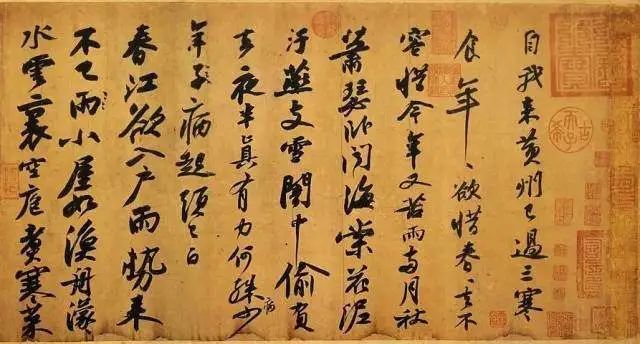 自我来黄州已過三寒
食年〻欲惜春〻去不
容惜今年又苦雨兩月秋
蕭瑟卧聞海棠花泥
汙燕支雪闇中偷負
去夜半真有力何殊少
病
年子病起須已白
春江欲入戶雨勢来
不已雨小屋如漁舟濛
水雲裏空庖煮寒菜